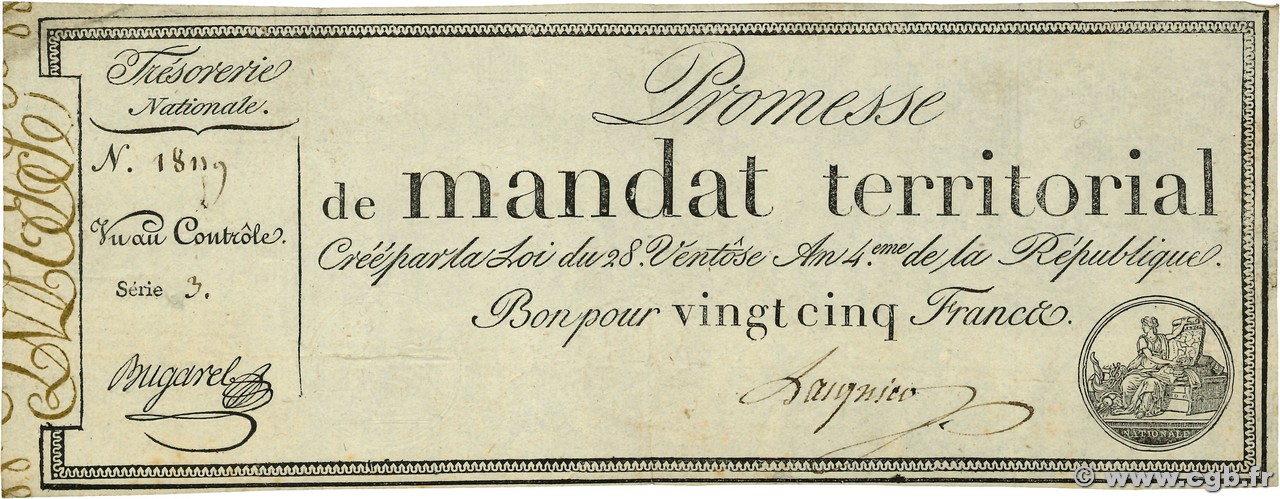 Trésorerie
Nationale.
N. 
Vu au Contrôle.
Série 3.
Bugarel
Promesse
de mandat territorial
Créé par la Loi du 28. Ventôse An 4.eme de la République.
Bon pour vingt cinq Francs.
NATIONALE
© www.cgb.fr